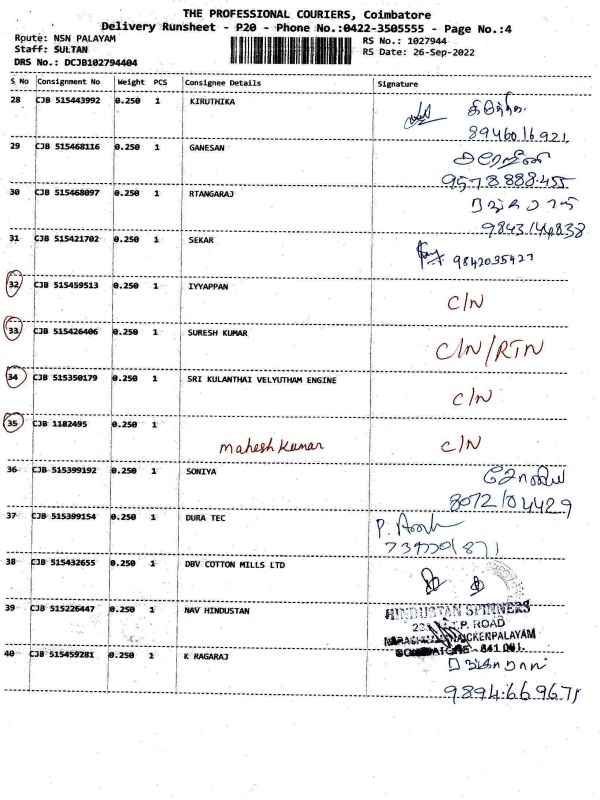 THE PROFESSIONAL COURIERS, Coimbatore
Delivery Runsheet - P20 - Phone No.:0422-3505555 - Page No.:4
Route: NSN PALAYAM RS No.: 1027944
Staff: SULTAN RS Date: 26-Sep-2022
DRS No.: DCJB102794404
S No Consignment No Weight PCS Consignee Details Signature
28 CJB 515443992 0.250 1 KIRUTHIKA
8946016921
29 CJB 515468116 0.250 1 GANESAN
9578888455
30 CJB 515468097 0.250 1 RTANGARAJ
9843144838
31 CJB 515421702 0.250 1 SEKAR 9842035427
32 CJB 515459513 0.250 1 IYYAPPAN C/N
33 CJB 515426406 0.250 1 SURESH KUMAR C/N/RTN
34 CJB 515350179 0.250 1 SRI KULANTHAI VELYUTHAM ENGINE C/N
35 CJB 1182495 0.250 1
Mahesh Kumar C/N
36 CJB 515399192 0.250 1 SONIYA
8072104429
37 CJB 515399154 0.250 1 DURA TEC
38 CJB 515432655 0.250 1 DBV COTTON MILLS LTD
39 CJB 515226447 0.250 1 NAV HINDUSTAN
HINDUSTAN SPINNERS
T.P. ROAD
NARASIMHANAICKENPALAYAM
COIMBATORE - 641 031.
40 CJB 515459281 0.250 1 K RAGARAJ